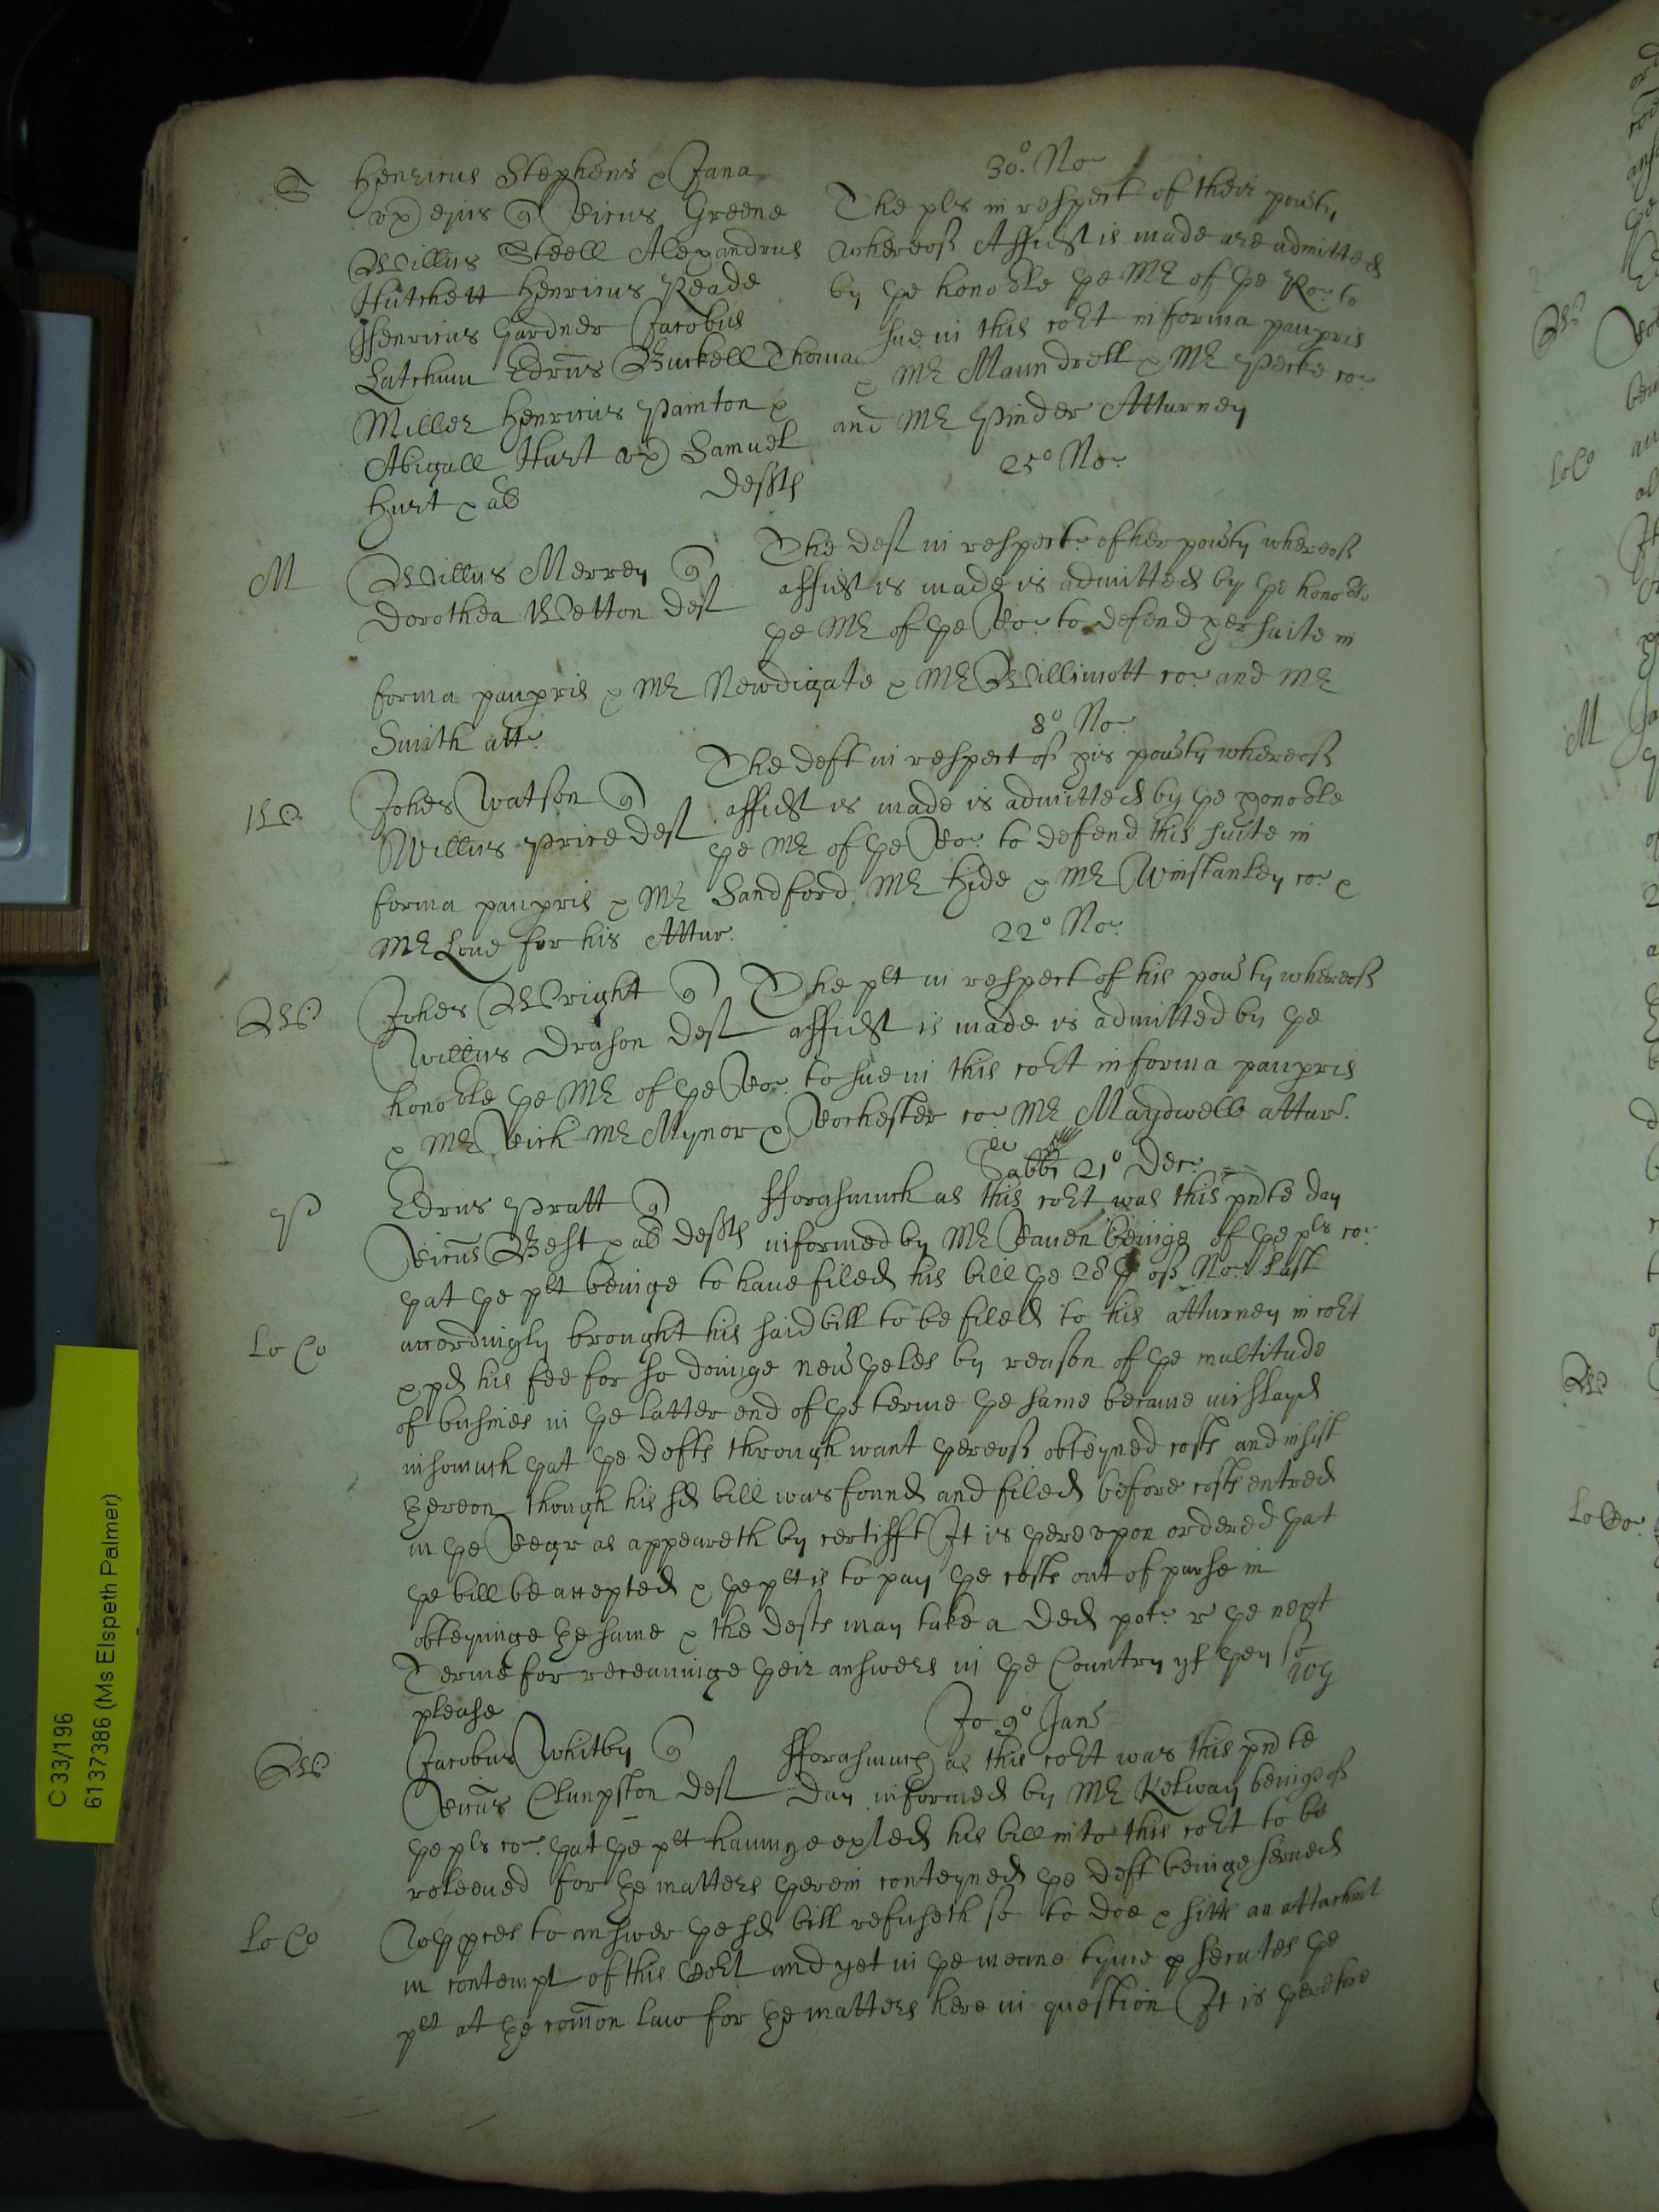 30° No
S
Henricus Stephens & Jana
ux) ejus q) Ricus Greene
Willus Steell Alexandrus
Hutchett Henricus Reade
Henricus Gardner Jacobus
Latchum Edrus Buckell Thoma
Miller Henricus Painton &
Abigall Hurt ux) Samuel
Hurt & al defts
The pls in respect of their pouty
whereof Affidt is made are admitted
by ye honoble ye Mr of ye Ro to
sue in this cort in forma paupris
& Mr Maundrell & Mr Pecke co
and Mr Pinder Atturney
25° No
M
Willus Merrey q)
Dorothea Wetton deft
The deft in respect of her pouty whereof
affidt is made is admitted by ye honoble
ye Mr of ye Ro to defend her suite in
forma paupris & Mr Newdigate & Mr Willimott co and Mr
Smith att
8° No
W
Johes Watson q)
Willus Price deft
The deft in respect of his pouty whereof
affidt is made is admitted by ye honoble
ye Mr of ye Ro to defend this suite in
forma paupris & Mr Sandford Mr Hide & Mr Winstanley co &
Mr Loue for his Attur.
22° No
W
Johes Wright q)
Willus Drason deft
The plt in respect of his pouty whereof
affidt is made is admitted by ye
honoble ye Mr of ye Ro to sue in this cort in forma paupris
& Mr Rich Mr Mynor & Rochester co Mr Maydwell attur.
Sabbi 21° Dec
P
Edrus Pratt q)
Ricus Best & al defts
fforasmuch as this cort was this pnte day
informed by Mr beinge of ye pls co
yat ye plt beinge to haue filed his bill ye 28th of No last
Lo Co
accordingly brought his said bill to be filed to his atturney in cort
& pd his fee for so doinge neuyeles by reason of ye multitude
of busines in ye latter end of ye terme ye same became mislayd
insomuch yat ye defts through want yereof obteyned costs and insist
yereon though his sd bill was found and filed before costs entred
in ye Regr as appeareth by certifft It is yereupon ordered yat
ye bill be accepted & ye plt is to pay ye costs out of purse in
obteyninge ye same & the defts may take a Ded pot r ye next
Terme for receauinge yeir answers in ye Country yf yey so
please
Jo 9° Jan
W
Jacobus Whitby q)
Ricus Clumpston deft
fforasmuch as this cort was this pnte
day informed by Mr Kelway beinge of
ye pls co yat ye plt hauinge exled his bill into this cort to be
releeued for ye matters yerein conteyned ye deft beinge serued
Lo Co
wth pces to answer ye sd bill refuseth so to doe & sitts an attachmt
in contempt of this Cort and yet in ye meane tyme p secutes ye
plt at ye comon law for ye matters here in question It is yerefore
C 33/196
6137386 (Ms Elspeth Palmer)